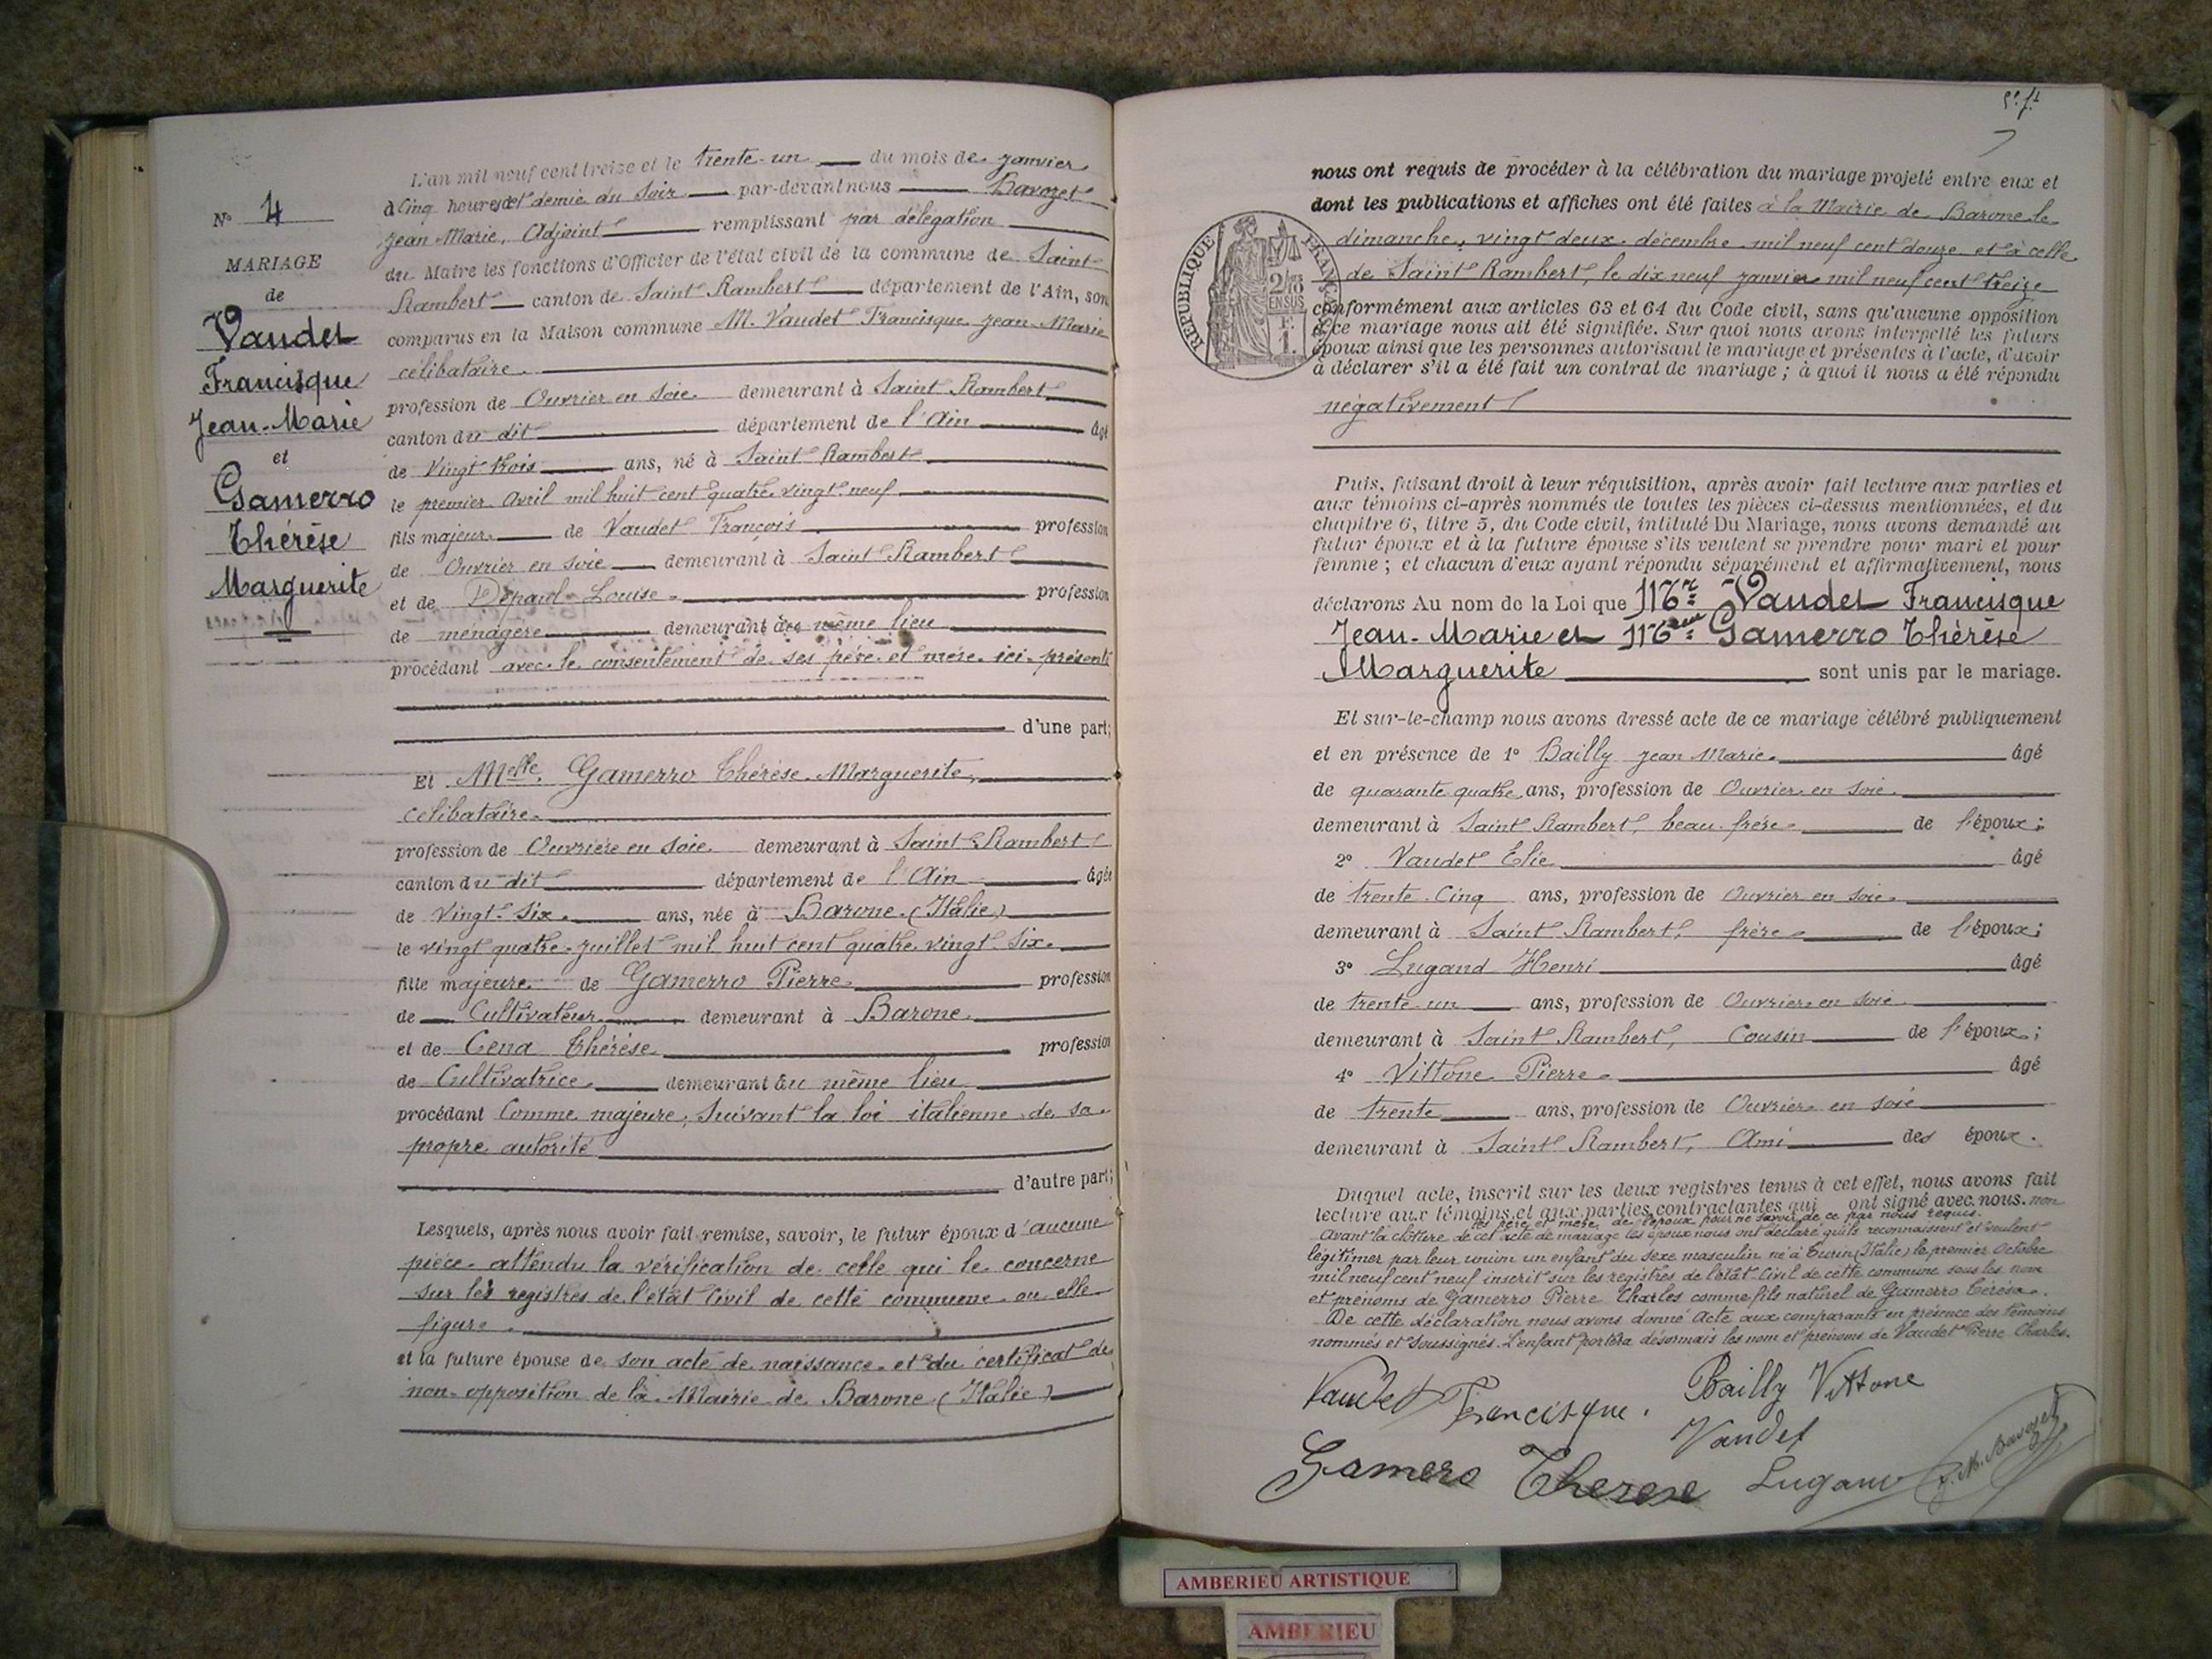 N° 4
MARIAGE
de
Vaudet
Francisque
Jean-Marie
et
Gamerro
Thérèse
Marguerite
L'an mil neuf cent treize et le trente-un du mois de janvier
à Cinq heures et demie du soir par-devant nous Bavozet
Jean Marie, Adjoint remplissant par délégation
du Maire les fonctions d'Officier de l'état civil de la commune de Saint
Rambert canton de Saint Rambert département de l'Ain, son
comparus en la Maison commune M. Vaudet Francisque Jean-Marie
célibataire.
profession de Ouvrier en soie demeurant à Saint Rambert
canton du dit département de l'Ain âgé
de vingt trois ans, né à Saint Rambert
le premier Avril mil huit cent quatre vingt neuf
fils majeur de Vaudet François profession
de Ouvrier en soie demeurant à Saint Rambert
et de Dépaul Louise profession
de ménagère demeurant au même lieu
procédant avec le consentement de ses père et mère ici présents
d'une part;
Et Melle Gamerro Thérèse Marguerite,
célibataire
profession de Ouvrière en soie demeurant à Saint Rambert
canton du dit département de l'Ain âgée
de vingt-six ans, née à Barone (Italie)
le vingt quatre juillet mil huit cent quatre vingt six
fille majeure de Gamerro Pierre profession
de Cultivateur demeurant à Barone
et de Cena Thérèse profession
de Cultivatrice demeurant au même lieu
procédant Comme majeure, suivant la loi italienne de sa
propre autorité
d'autre part;
Lesquels, après nous avoir fait remise, savoir, le futur époux d'aucune
pièce attendu la vérification de celle qui le concerne
sur les registres de l'état civil de cette commune ou elle
figure.
et la future épouse de son acte de naissance et du certificat de
non-opposition de la Mairie de Barone (Italie)
nous ont requis de procéder à la célébration du mariage projeté entre eux et
dont les publications et affiches ont été faites à la Mairie de Barone le
dimanche, vingt deux décembre mil neuf cent douze et à celle
de Saint Rambert, le dix neuf janvier mil neuf cent treize
RÉPUBLIQUE FRANÇAISE
2/10
EN SUS
F.
1.
conformément aux articles 63 et 64 du Code civil, sans qu'aucune opposition
à ce mariage nous ait été signifiée. Sur quoi nous avons interpellé les futurs
époux ainsi que les personnes autorisant le mariage et présentes à l'acte, d'avoir
à déclarer s'il a été fait un contrat de mariage ; à quoi il nous a été répondu
négativement
Puis, faisant droit à leur réquisition, après avoir fait lecture aux parties et
aux témoins ci-après nommés de toutes les pièces ci-dessus mentionnées, et du
chapitre 6, titre 5, du Code civil, intitulé Du Mariage, nous avons demandé au
futur époux et à la future épouse s'ils veulent se prendre pour mari et pour
femme ; et chacun d'eux ayant répondu séparément et affirmativement, nous
déclarons Au nom de la Loi que Mr Vaudet Francisque
Jean-Marie et Melle Gamerro Thérèse
Marguerite sont unis par le mariage.
Et sur-le-champ nous avons dressé acte de ce mariage célébré publiquement
et en présence de 1° Bailly Jean Marie âgé
de quarante quatre ans, profession de Ouvrier en soie
demeurant à Saint Rambert, beau-frère de l'époux;
2° Vaudet Elie âgé
de trente-Cinq ans, profession de Ouvrier en soie
demeurant à Saint Rambert, frère de l'époux;
3° Lugand Henri âgé
de trente-un ans, profession de Ouvrier en soie
demeurant à Saint Rambert, Cousin de l'époux;
4° Vittone Pierre âgé
de trente ans, profession de Ouvrier en soie
demeurant à Saint Rambert, Ami des époux.
Duquel acte, inscrit sur les deux registres tenus à cet effet, nous avons fait
lecture aux témoins et aux parties contractantes qui ont signé avec nous. non
les père et mère de l'époux pour ne savoir de ce par nous requis.
Avant la clôture de cet acte de mariage les époux nous ont déclaré qu'ils reconnaissent et veulent
légitimer par leur union un enfant du sexe masculin né à Turin (Italie) le premier Octobre
mil neuf cent neuf inscrit sur les registres de l'état-Civil de cette commune sous les nom
et prénoms de Gamerro Pierre Charles comme fils naturel de Gamerro Térésa.
De cette déclaration nous avons donné Acte aux comparants en présence des témoins
nommés et soussignés. L'enfant portera désormais les nom et prénoms de Vaudet Pierre Charles.
Vaudet Francisque. Bailly Vittone
Vaudet
Gamero Therese Lugand J. M. Bavozet
AMBERIEU ARTISTIQUE
AMBERIEU